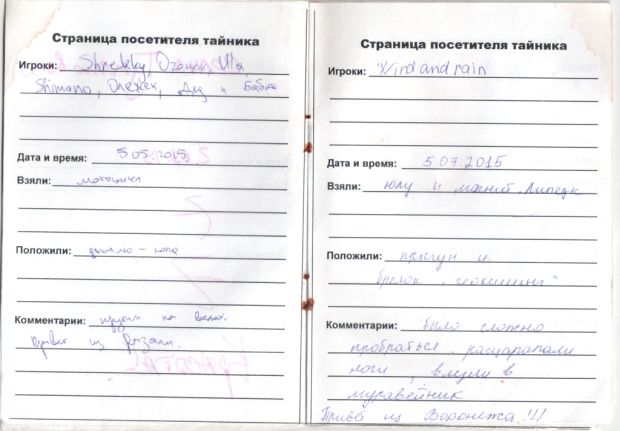 Страница посетителя тайника
Игроки: Shrekky,
Shimano, Дед и Бабка
Дата и время: 5.05.2015
Взяли: мотоцикл
Положили: динамо - юла
Комментарии: крутим на велах.
Привет из Рязани.
Страница посетителя тайника
Игроки: Wind and rain
Дата и время: 5.07.2015
Взяли: юлу и магнит Липецк
Положили: прыгун и
брелок "геокешинг"
Комментарии: было сложно
пробраться, расцарапали
ноги, влезли в
муравейник
Привет из Воронежа!!!